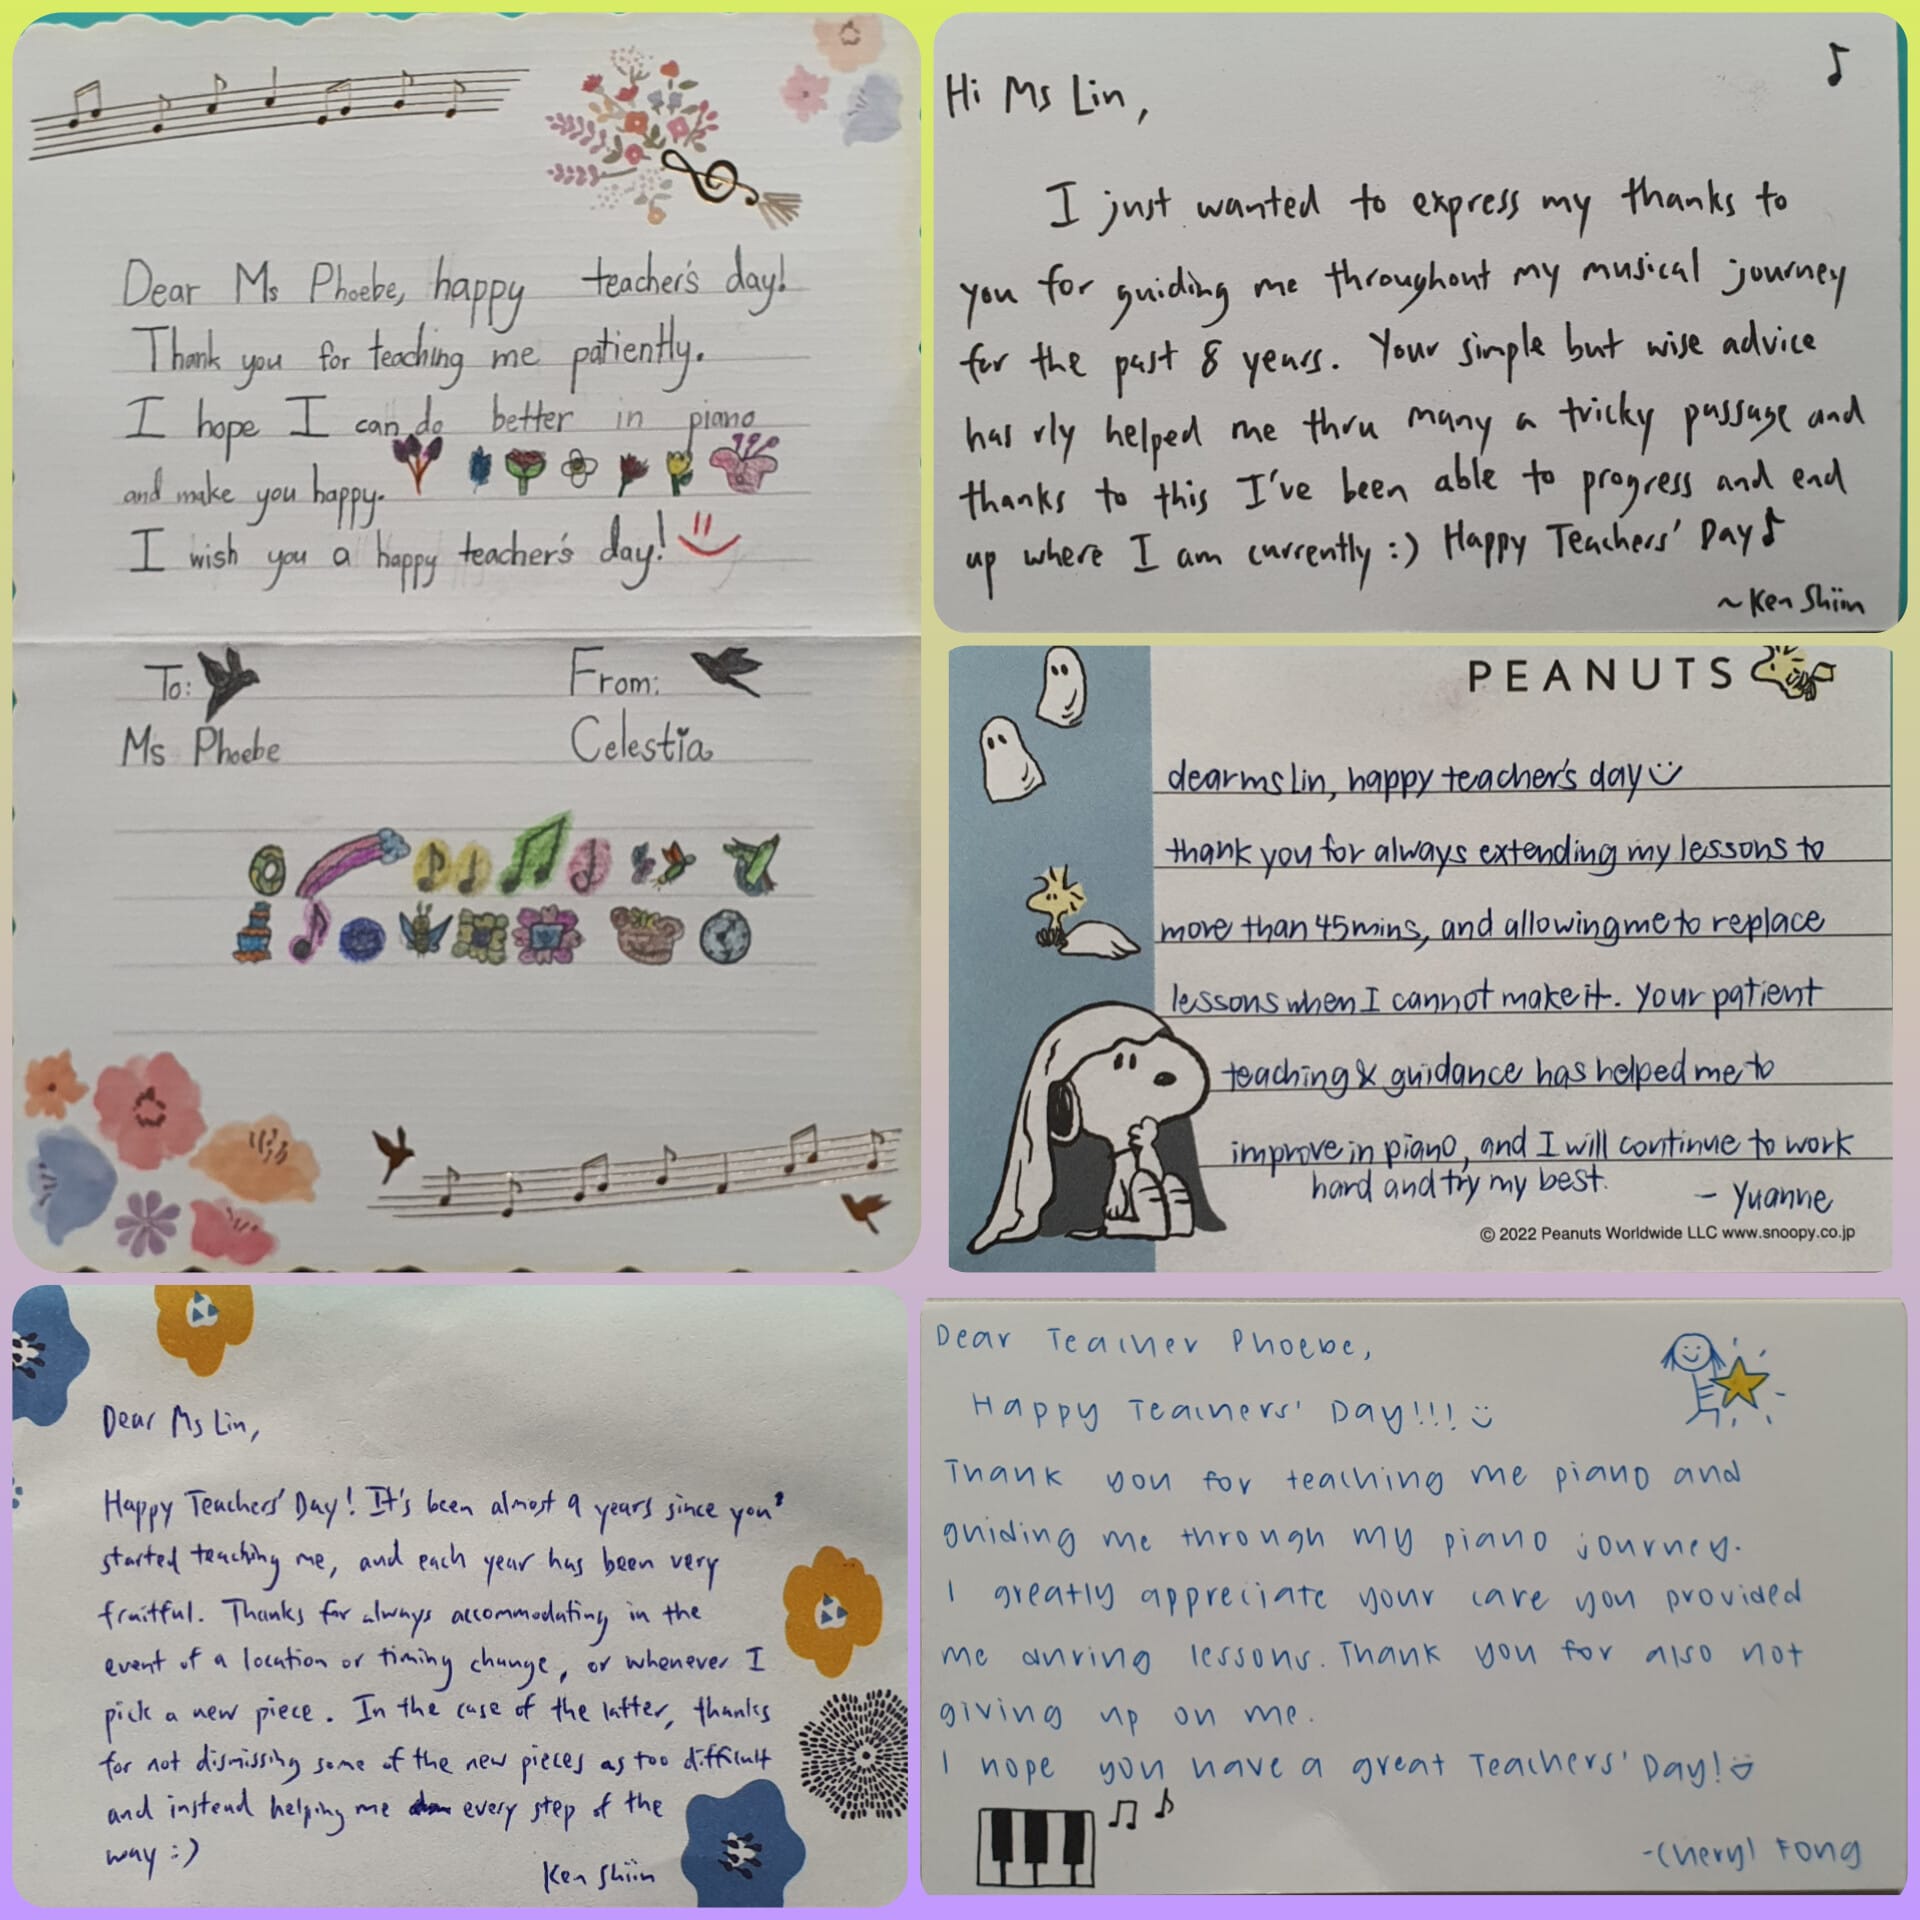 Dear Ms Phoebe, happy teacher's day!
Thank you for teaching me patiently.
I hope I can do better in piano
and make you happy.
I wish you a happy teacher's day!
To:
From:
Ms Phoebe
Celestia
Hi Ms Lin,
I just wanted to express my thanks to
you for guiding me throughout my musical journey
for the past 8 years. Your simple but wise advice
has rly helped me thru many a tricky passage and
thanks to this I've been able to progress and end
up where I am currently :) Happy Teachers' Day
~ Ken Shiin
PEANUTS
dear ms lin, happy teacher's day
thank you for always extending my lessons to
more than 45 mins, and allowing me to replace
lessons when I cannot make it. Your patient
teaching & guidance has helped me to
improve in piano, and I will continue to work
hard and try my best.
- Yuanne
© 2022 Peanuts Worldwide LLC www.snoopy.co.jp
Dear Ms Lin,
Happy Teachers' Day! It's been almost 9 years since you
started teaching me, and each year has been very
fruitful. Thanks for always accommodating in the
event of a location or timing change, or whenever I
pick a new piece. In the case of the latter, thanks
for not dismissing some of the new pieces as too difficult
and instead helping me every step of the
way :)
Ken Shiin
Dear Teacher Phoebe,
Happy Teachers' Day!!!
Thank you for teaching me piano and
guiding me through my piano journey.
I greatly appreciate your care you provided
me during lessons. Thank you for also not
giving up on me.
I hope you have a great Teachers' Day!
- Cheryl Fong